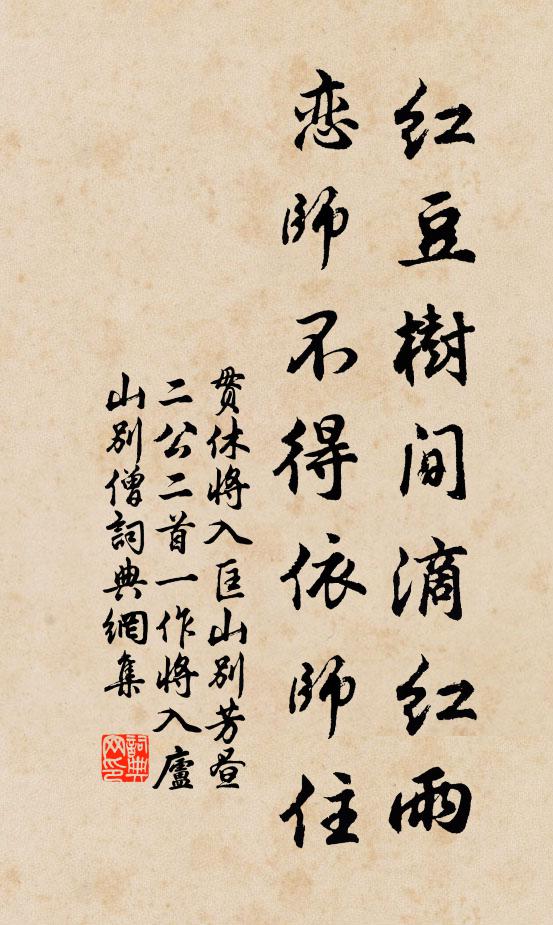 红豆樹间滴红雨
恋師不得依師住
贯休將入匡山别芳昼
二公二首一作將入廬
山别僧詞典網集
詞典
网印